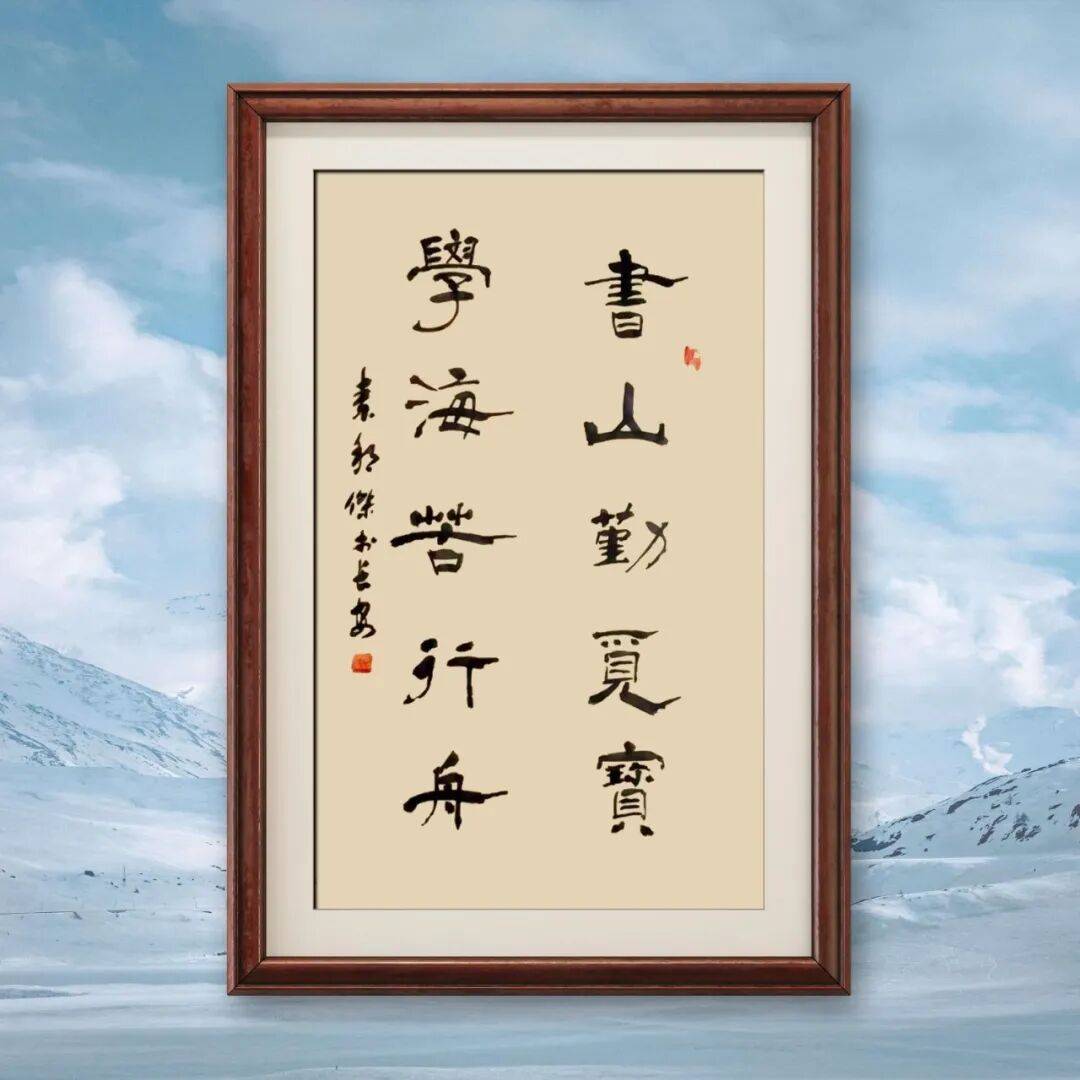 書山勤覓寶
學海苦行舟
傑書長安